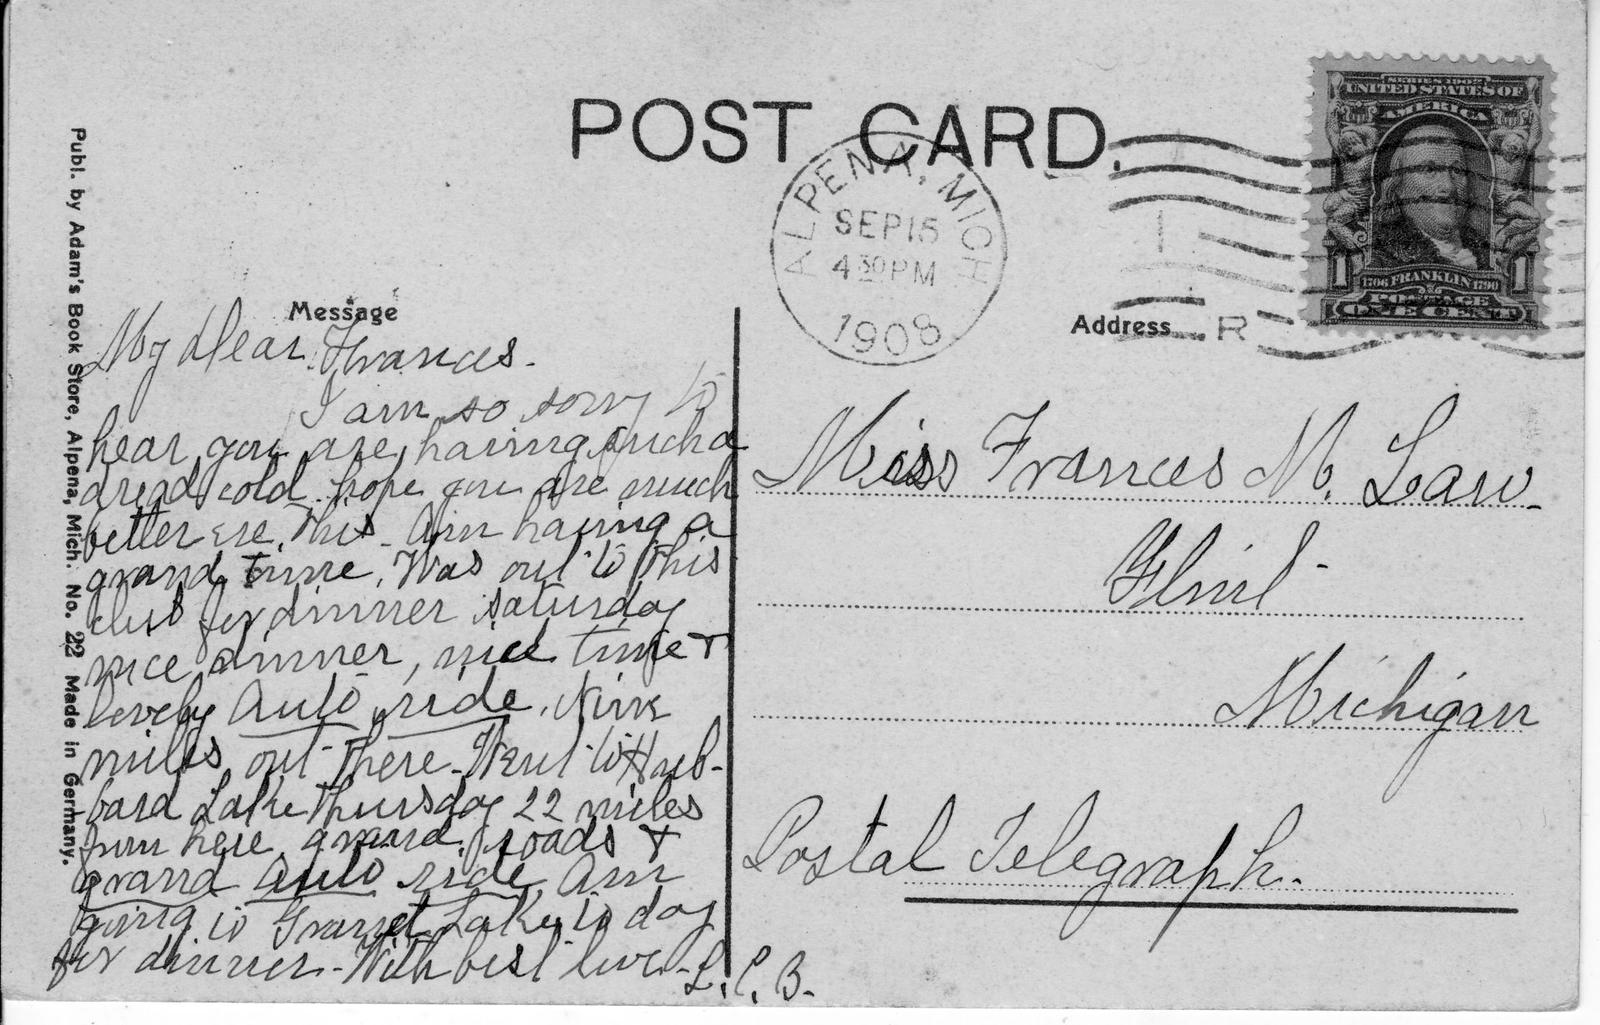 POST CARD.
ALPENA, MICH
SEP 15
4 30 PM
1908
SERIES 1902
UNITED STATES OF
AMERICA
1706 FRANKLIN 1790
POSTAGE
1 ONE CENT 1
R
Message
Address
Publ. by Adam's Book Store, Alpena, Mich. No. 22 Made in Germany.
My dear Frances.
I am so sorry to
hear you are having such a
dread cold hope you are much
better ere this. Am having a
grand time. Was out to this
club for dinner saturday
nice dinner, nice time &
lovely auto ride. Nine
miles out there. Went to Hub-
bard Lake Thursday 22 miles
from here, grand roads &
grand auto ride. Am
going to Grand Lake to day
for dinner. - With best love - L. C. B.
Miss Frances M. Law.
Flint -
Michigan
Postal Telegraph.